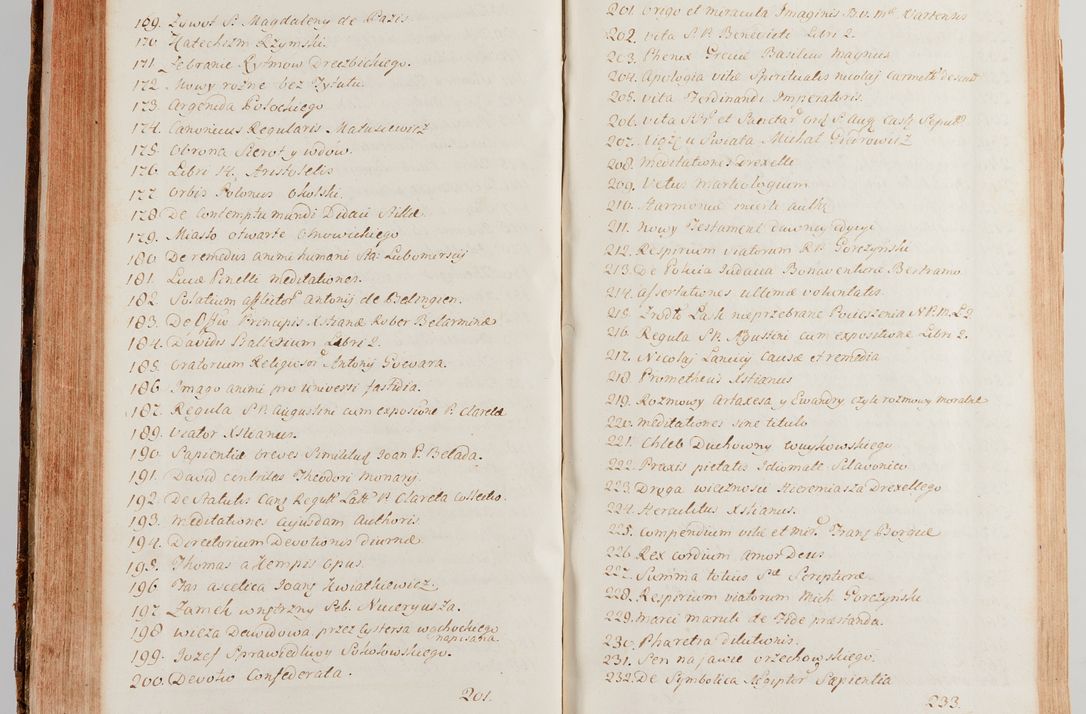 169. Zywot S. Magdaleny de Pazis
170 Katechizm Rzymski.
171. Zebranie Rytmow Drezbickiego.
172. Mowy rozne bez Tytułu.
173. Argenida Potockiego
174. Canonicus Regularis Matusiewicz
175. Obrona Sierot y wdów.
176. Libri 14. Aristotelis
177. Orbis Polonus Okolski.
178. De Contemptu mundi Didaci Stellæ
179. Miasto otwarte
180. De remedijs animi humani Sta: Lubomirscij
181. Lucæ Pinelli meditationes.
182. Solatium afflictor Antonij de
183. De Offo Principis Xstianæ Rober Belarminæ
184. Davidis Libri 2.
185. Oratorium Religiosor Antonij Guevara.
186. Imago animi pro universi fastidia.
187. Regula S.P. Augustini cum exposione P. Clareta
189. Viator Xstianus.
190. Sapientiæ breves Similitud Joan P. Belada.
191. David Theodori monarij.
192. De Statutis Canz Regul Latt P. Clareta collectio.
193. Meditationes cujusdam Authoris.
194. Directorium Devotionis diurnæ
195. Thomas a Kempis opus.
196 Fax ascetica Joanz Kwiatkiewicz
197. Zamek wnętrzny Seb. Nuceryusza.
198 wieza Dawidowa przez Cystersa wąchockiego napisana.
199. Jozef Sprawiedliwy Sokołowskiego.
200. Devotio Confederata.
201.
201. Origo et miracula Imaginis B.V. M
202. Vita S.P. Benedicti Libri 2.
203. Phenix Greciæ Basilius Magnus
204. Apologia vitæ Spiritualis Nicolaj Carmelit
205. Vita Ferdinandi Imperatoris.
206. Vita et ord S. Aug Sepult
207. Swiata Michał
208. Meditationes Drexelli
209. Vetus Martologium
210. Harmonia
211. Nowy Testament dawney edycyi
212. Respirium viatorum R.P. Gorczynski
213. De Politia Judaica Bonaventuræ Bertramo
214. Assertationes ultimæ voluntatis.
215. Zrodł Łask nieprzebrane Pocieszenia N.P.M.
216. Regula S.P. Agustini cum expositione Libri 2.
217. Nicolaj Lancicij Causæ et remedia
218. Prometheus Xstianus
219. Rozmowy Artaxesa y Ewandry czyli rozmowy moralne
220. Meditationes sine titulo
221. Chleb Duchowny
222. Praxis pietatis Idiomate Sclavonico
223. Droga wieczności Hieremiasza Drexellego
224. Herculitus Xstianus.
225. Compendium vitæ et mir Franz Borgiæ
226. Rex cordium Amor Deus
227. Summa totius Scripturæ.
228. Respirium viatorum Mich Gorczynski
229. Marci maruli de Fide præstanda.
230. Pharetra dilutionis.
231. Sen na jawie orzechowskiego.
232. De Symbolica Ægiptior Sapientia
233.